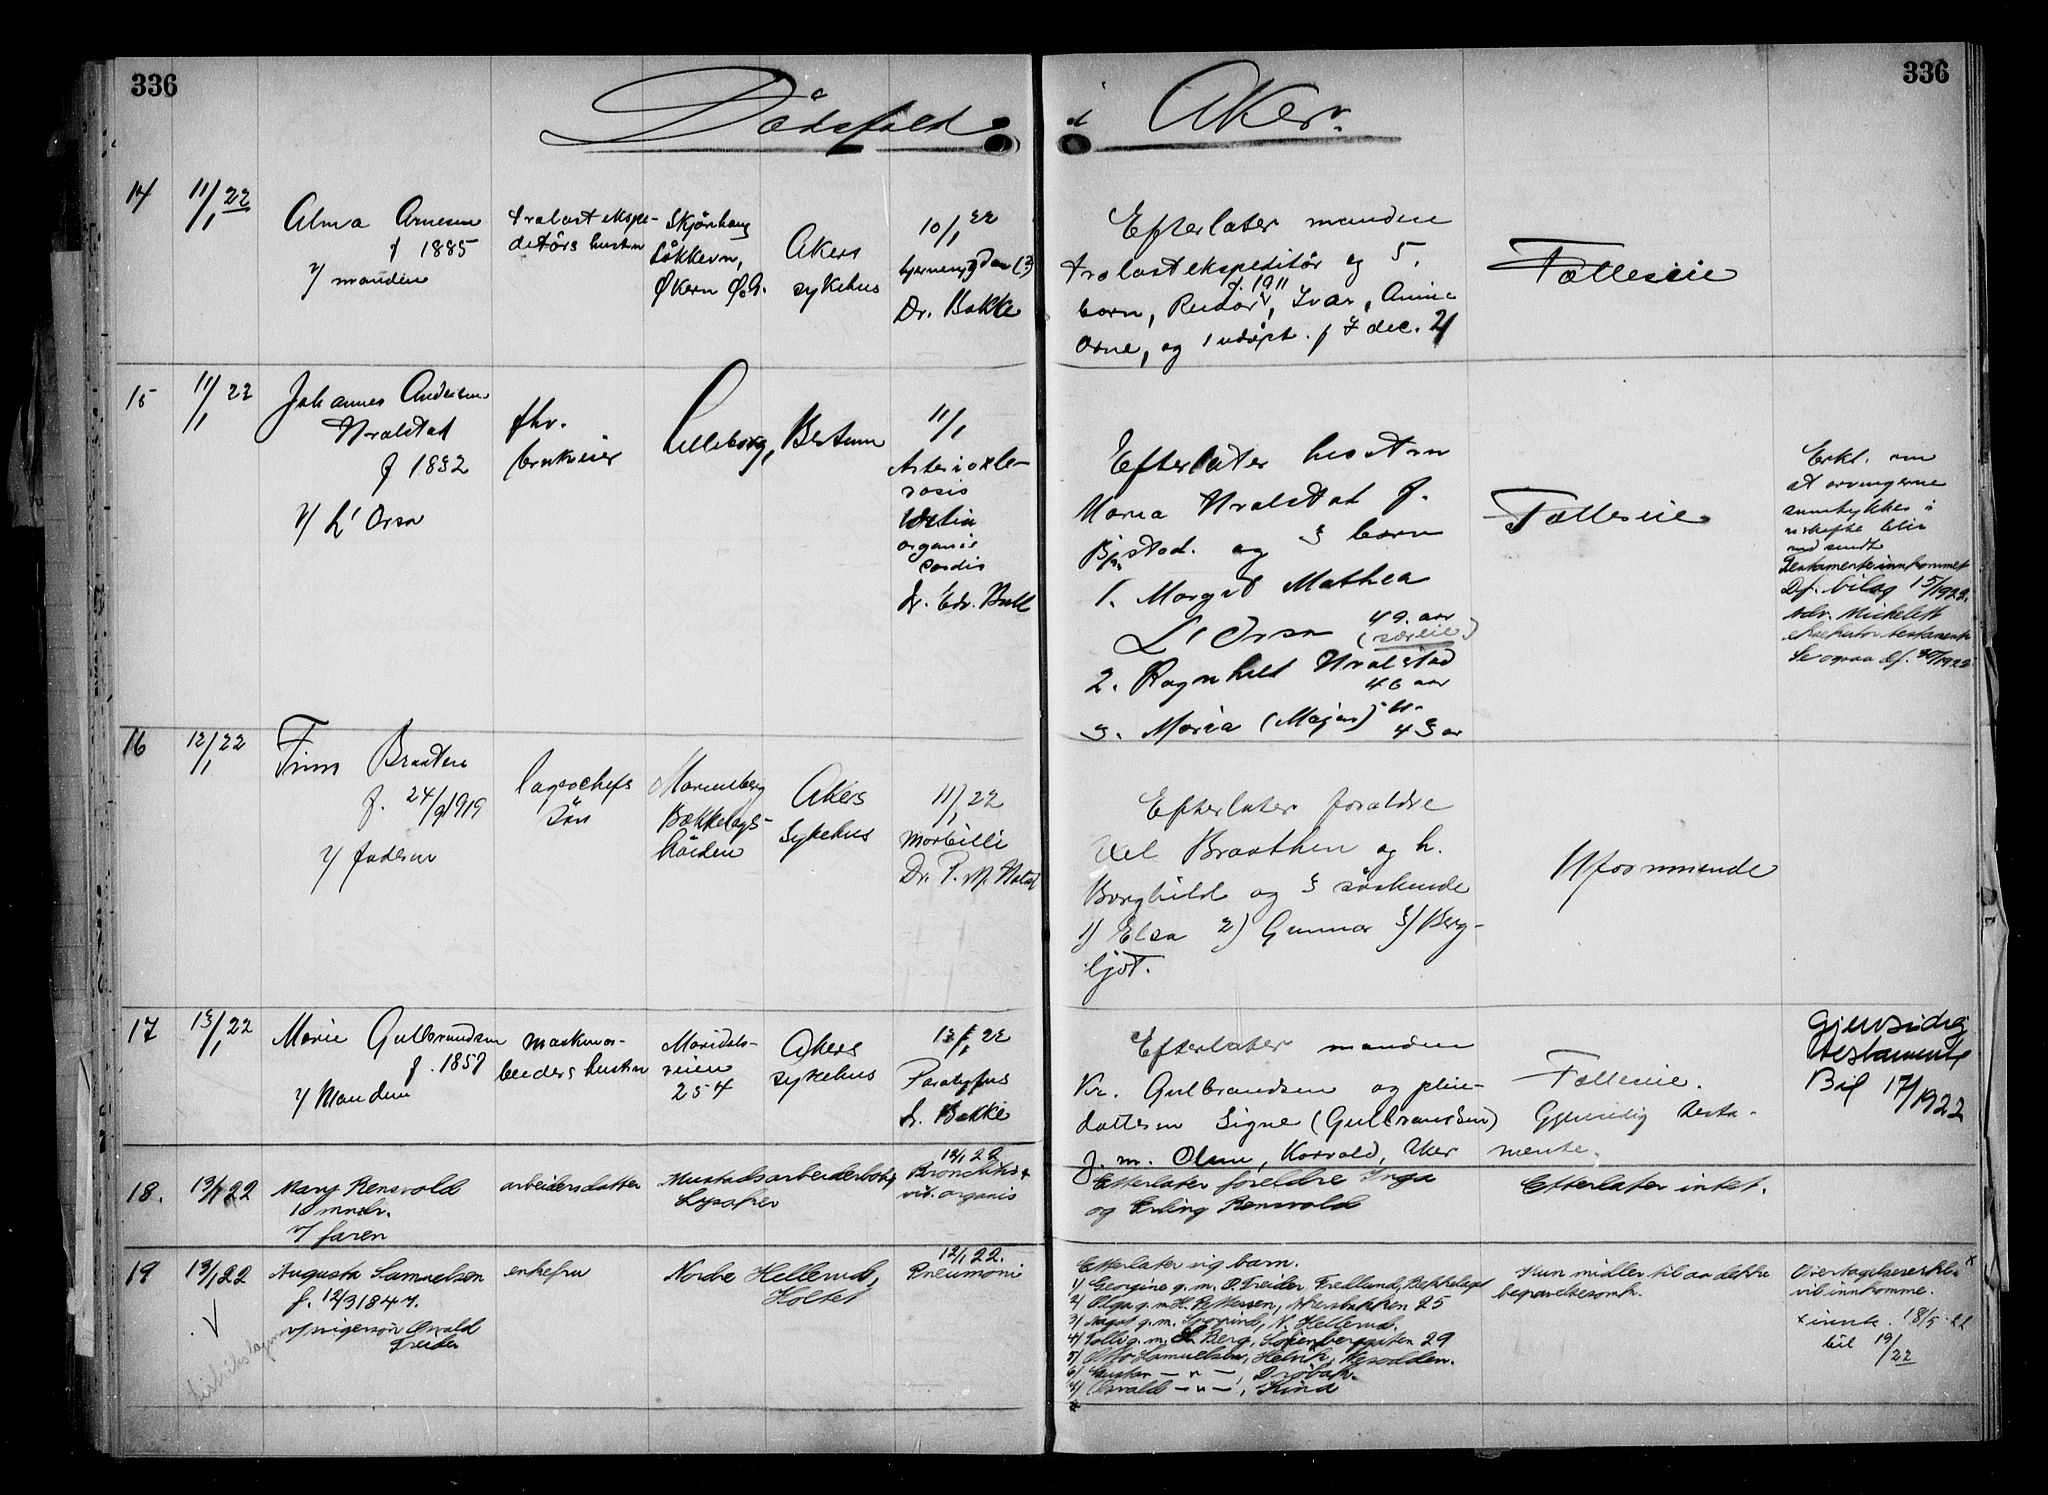 336
336
Dødsfald i Aker.
14
11/1 22
Alma Arnesen
f 1885
v/ manden
trælastekspe-
ditørs hustru
Skjønhaug
Løkkevn,
Økern Ø.A.
Akers
sykehus
10/1 22
hjernesygdom (?)
Dr. Bakke
Efterlater manden
trælastekspeditør og 5
f. 1911
barn, Reidar, Ivar, Anne
Arne, og 1 udøpt. f 7 dec. 21
Fælleseie
15
11/1 22
Johannes Andersen
Hvalstad
f 1832
v/ L'Orsa
fhv.
brukeier
Lilleborg, Bestum
11/1
Arterioskle-
rosis
Vitia
organis
cordis
Dr. Edv. Bull
Efterlater hustru
Maria Hvalstad f.
Bjerstad. og 3 barn
1. Margit Mathea
L'Orsa 49 aar
(særeie)
2. Ragnhild Hvalstad
46 aar
3. Maria (Majas) -"-
43 aar
Fælleseie
Erkl. om
at arvingerne
samtykker i
uskifte blir
indsendt
Testamente innkommet
Df. bilag 15/1922.
Adv. Michelet
eksekutor testamenti
Se ogsaa Df. 30/1922
16
12/1 22
Finn Braaten
f. 24/9 1919
v/ faderen
lagerchefs
søn
Marienberg
Bækkelags-
høiden
Akers
Sykehus
11/1 22
Morbilli
Dr. P. M. Holst
Efterlater forældre
Braathen og h.
Borghild og 3 søskende
1) Elsa 2) Gunnar 3) Berg-
ljot.
Uformuende
17
13/1 22
Marie Gulbrandsen
f. 1857
v/ Manden
maskinar-
beiders hustru
Maridals-
veien
254
Akers
sykehus
13/1 22
Paratyfus
Dr. Bakke
Efterlater manden
Kr. Gulbrandsen og pleie-
datteren Signe (Gulbrandsen)
g. m. Olsen, Korsvold, Aker
Fælleseie.
Gjensidig testa-
mente.
Gjensidig
testamente
Bil 17/1922
18.
13/1 22
Mary Rensvold
10 mndr.
v/ faren
arbeidersdatter
Mustads arbeiderbolig
Lysaker
12/1 22
Bronchitis +
vit. organis
Efterlater foreldre Inga
og Erling Rensvold
Efterlater intet.
19
13/1 22
Augusta Samuelsen
f. 12/3 1847.
v/ svigersøn Osvald
Treider
enkefru
Nordre Hellerud,
Holtet
12/1 22.
Pneumoni
Efterlater sig barn.
1) Georgine g. m. O. Treider, Fjellund, Bekkelaget
2) Olga g. m. H. Pettersen, Akersbakken 25
3) Aagot g. m. N. Hellerud.
4) Tolli g. m. Berg, Sofienberggaten 29
5) Otto Samuelsen, Helvik, Nesodden.
6) Gustav —"—, Drøbak.
7) Osvald —"—, Kina
Kun midler til aa dekke
begravelsesomk.
Overtagelseserklæ-
vil innkomme.
x innk. 18/5-22
bil 19/22